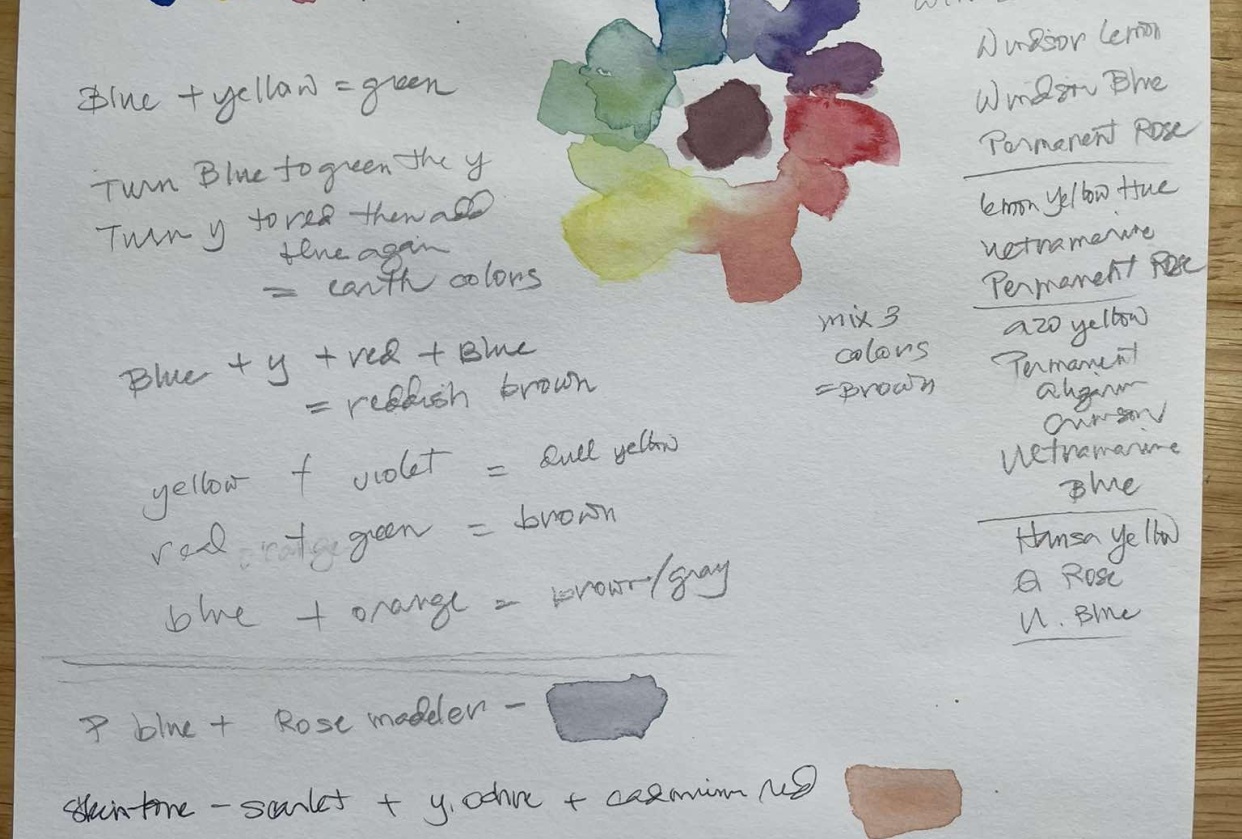 Blue + yellow = green
Turn Blue to green the y
Turn y to red then add
blue again
= earth colors
Blue + y + red + Blue
= reddish brown
yellow + violet = dull yellow
red orange + green = brown
blue + orange = brown/gray
P blue + Rose madder -
skin tone - scarlet + y. ochre + cadmium red
mix 3
colors
= Brown
Windsor Lemon
Windsor Blue
Permanent Rose
lemon Yellow Hue
Permanent Rose
azo yellow
Permanent
Crimson
Blue
Hansa Yellow
Q Rose
U. Blue